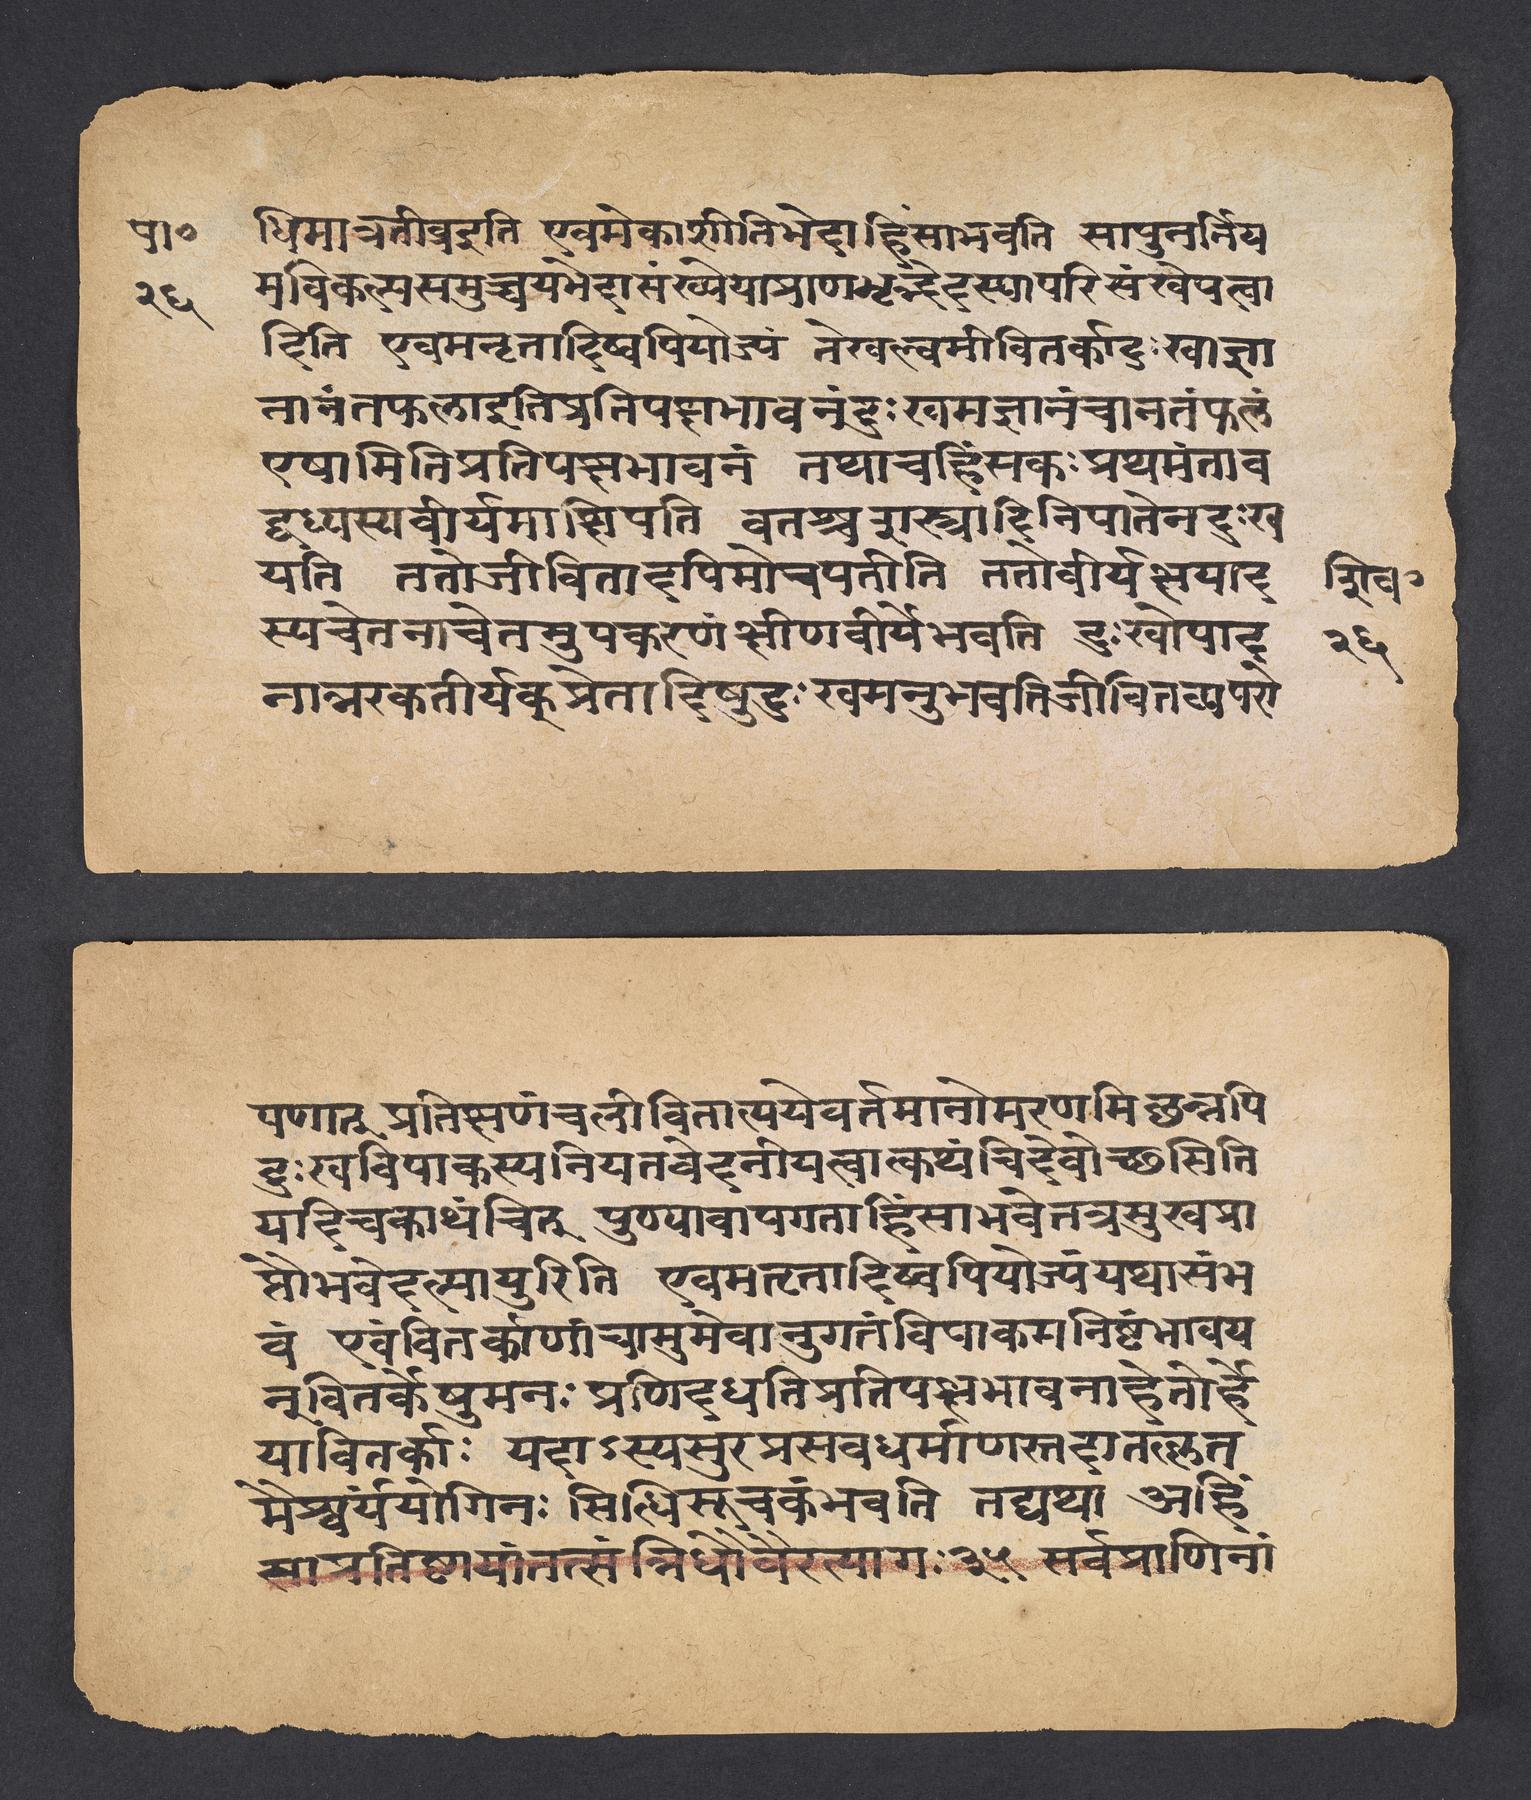 पा०
२६
धिमात्रतीव्रइति एवमेकाशीतिभेदाहिंसाभवति सापुनर्निय
मविकल्पसमुच्चयभेदासंख्येयाप्राणभृद्भेदस्यापरिसंखेयत्वा
दिति एवमनृतादिष्वपियोज्यं तेखल्वमीवितर्कादुःखाज्ञा
नानंतफलाइतिप्रतिपक्षभावनंदुःखमज्ञानंचानतंफलं
एषामितिप्रतिपक्षभावनं तथाचहिंसकःप्रथमंताव
द्वध्यस्यवीर्यमाक्षिपति वतश्चशस्त्रादिनिपातेनदुःख
यति ततोजीवितादपिमोचपतीति ततोवीर्यक्षयाद
स्यचेतनाचेतमुपकरणंक्षीणवीर्यंभवति दुःखोपाद
नान्नरकतीर्यक्प्रेतादिषुदुःखमनुभवतिजीवितव्यपरो
शिव०
२६
पणात् प्रतिक्षणंचलीवितात्ययेवर्तमानोमरणमिछन्नपि
दुःखविपाकस्यनियतवेदनीयत्वात्कथंचिदेवोच्छसिति
यादिचकाथंचित् पुण्यावापगताहिंसाभवेतत्रसुखप्रा
प्तौभवेदल्पायुरिति एवमतृतादिष्वंपियोज्यंयथासंभ
वं एवंवितर्काणांचामुमेवानुगतंविपाकमनिष्टंभावय
न्वितर्केषुमनः प्रणिदधतिप्रतिपक्षभावनाद्धेतोर्हे
यावितर्काः यदाऽस्यसुरप्रसवधर्माणस्तदातत्कृत
मैश्वर्ययोगिनः सिद्धिसूचकंभवति तद्यथा अहिं
साप्रतिष्टायांतत्संन्निधौवैरत्यागः३५ सर्वप्राणिनां